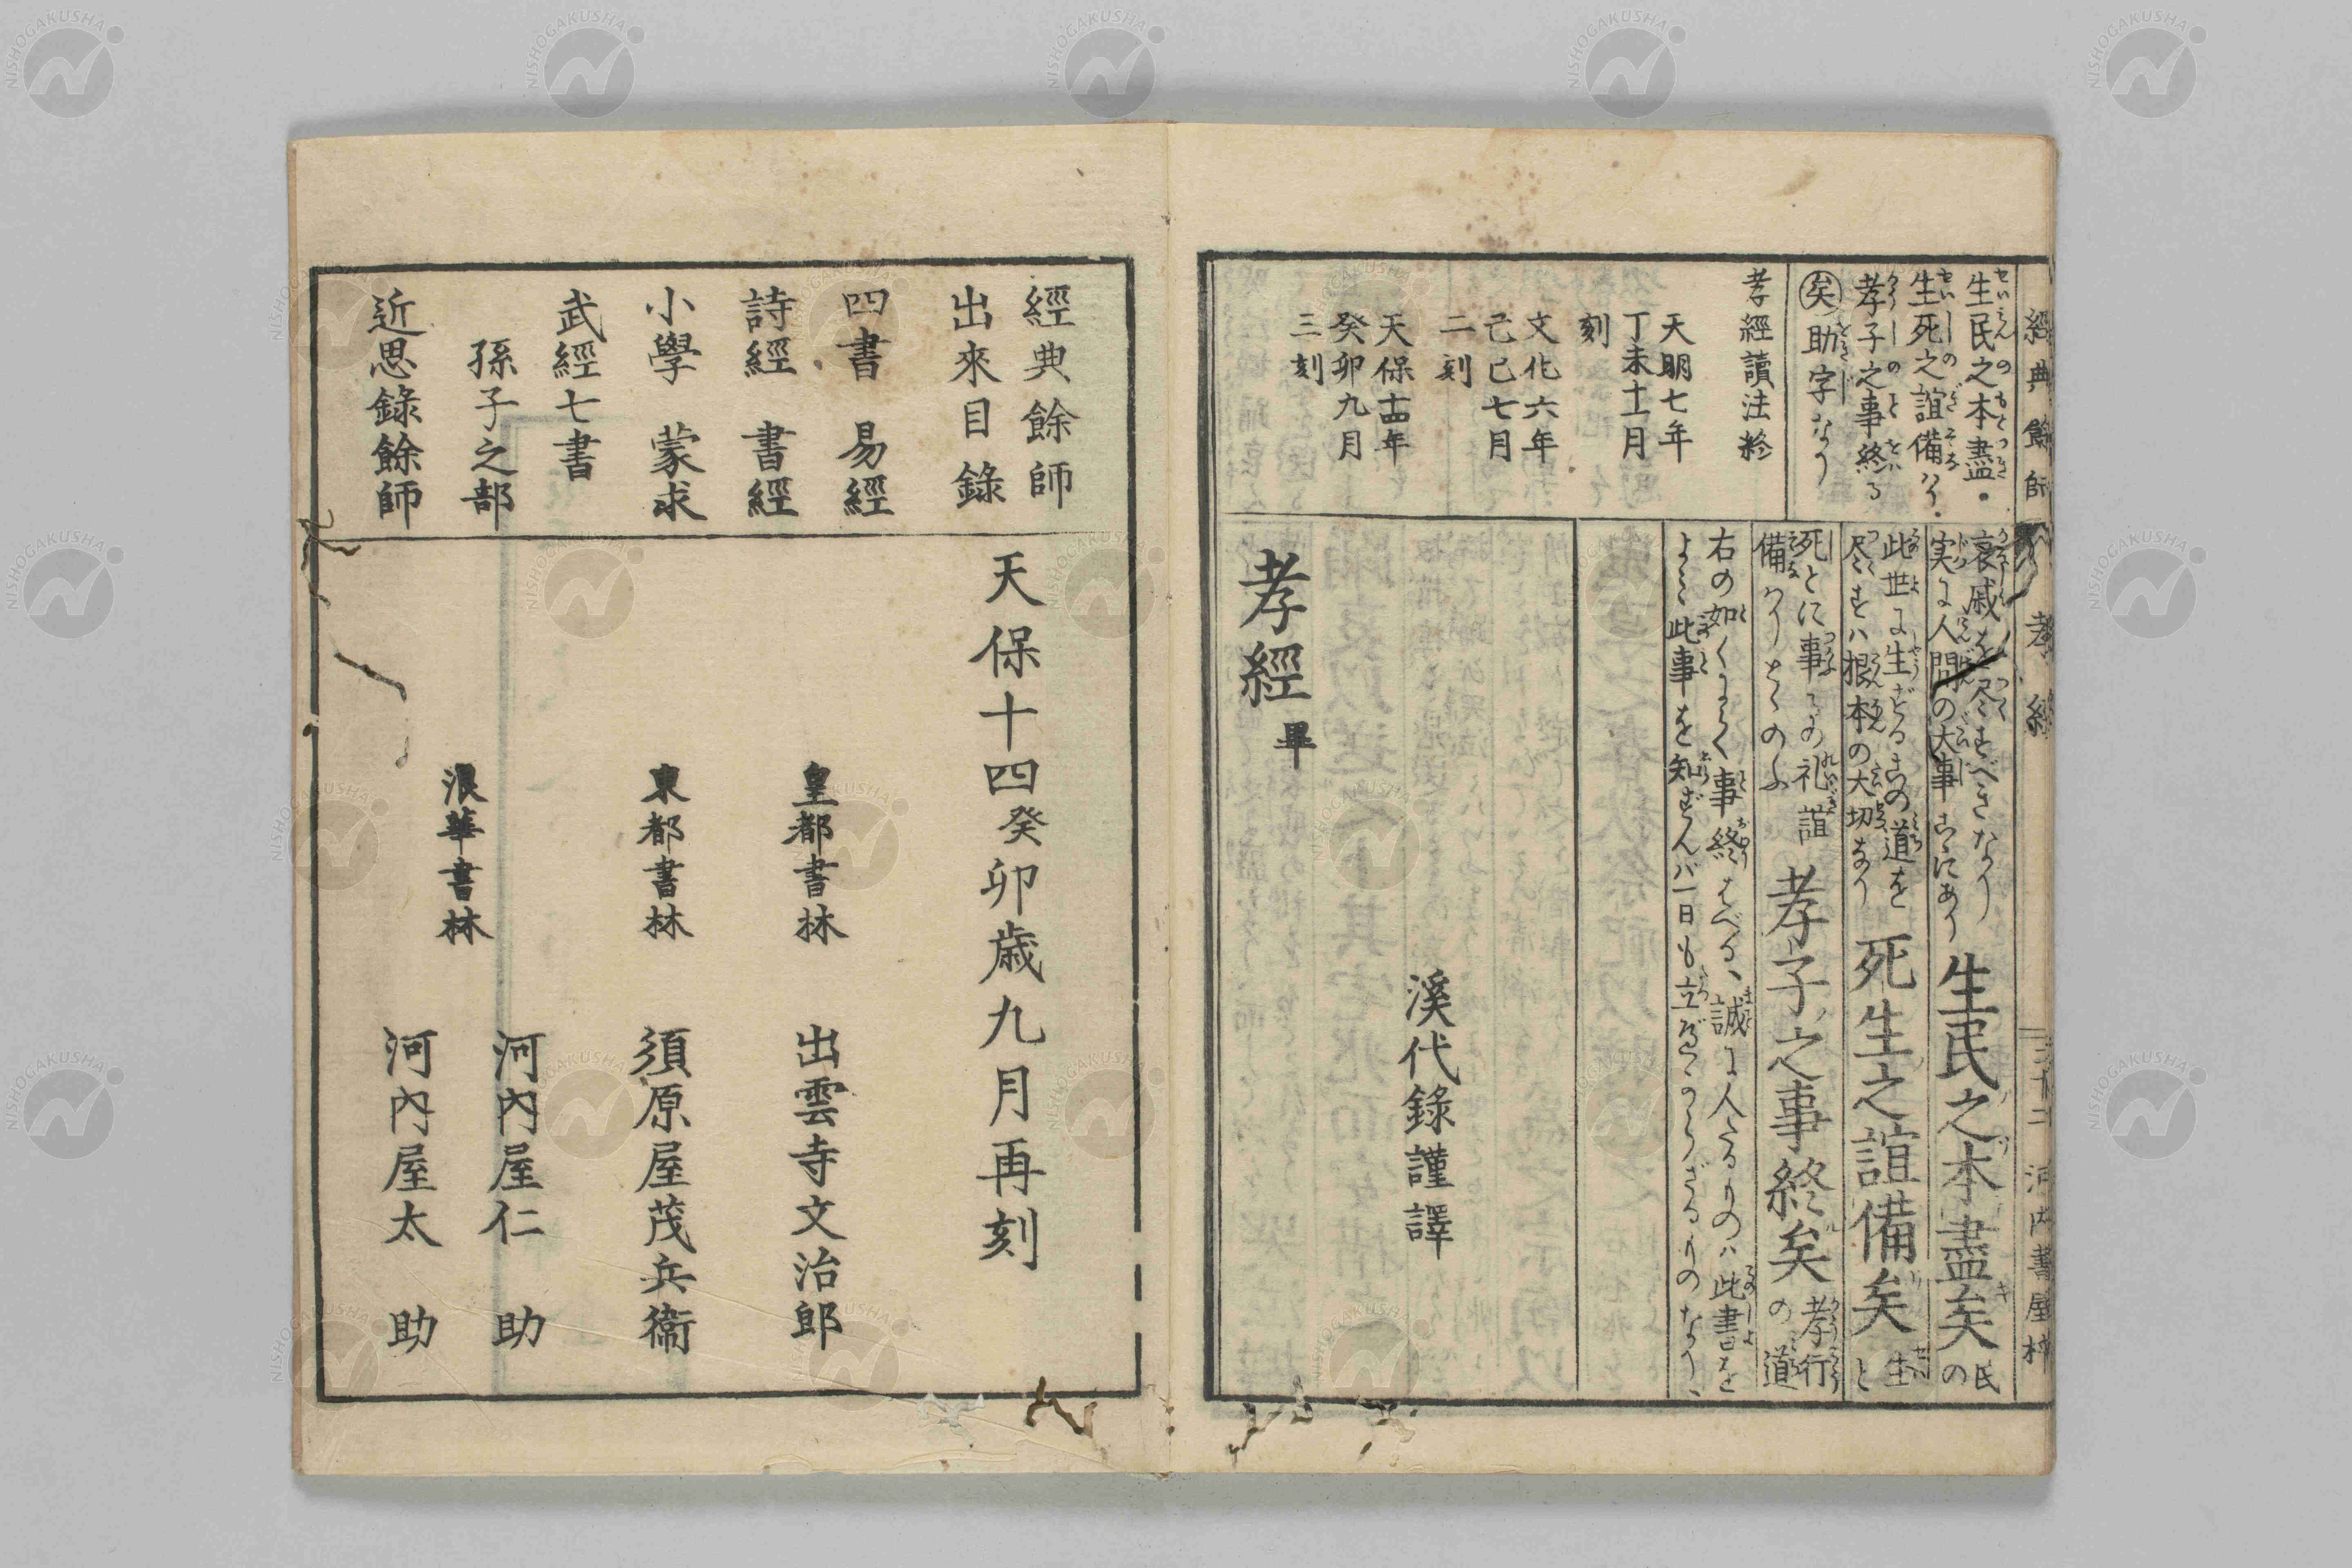 經典餘師
孝經
三十二
河内書屋梓
生民之本盡・
生死之誼備り・
孝子之事終る
矣助字なり
孝經讀法終
天明七年
丁未十一月
刻
文化六年
己巳七月
二刻
天保十四年
癸卯九月
三刻
哀戚を尽すべきなり
実に人間の大事こゝにあり
生民之本盡矣
民の
此世に生ずるの道を
尽すハ根本の大切なり
死生之誼備矣
生と
死とに事るの礼誼
備りとゝのふ
孝子之事終矣
孝行の道
右の如くよく〱事終はべる、誠に人たるものハ此書を
よく此事を知ずんバ一日も立べからざるものなり、
溪代錄謹譯
孝經畢
經典餘師
出來目錄
四書 易經
詩經 書經
小學 蒙求
武經七書
孫子之部
近思錄餘師
天保十四癸卯歳九月再刻
皇都書林 出雲寺文治郎
東都書林 須原屋茂兵衞
浪華書林
河内屋仁助
河内屋太助
NISHOGAKUSHA